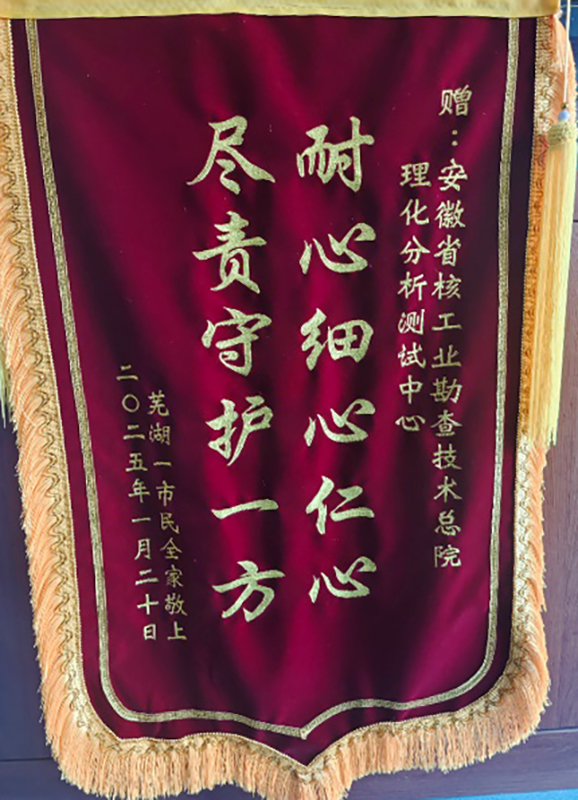 赠：安徽省核工业勘查技术总院
理化分析测试中心
耐心细心仁心
尽责守护一方
芜湖一市民全家敬上
二〇二五年一月二十日